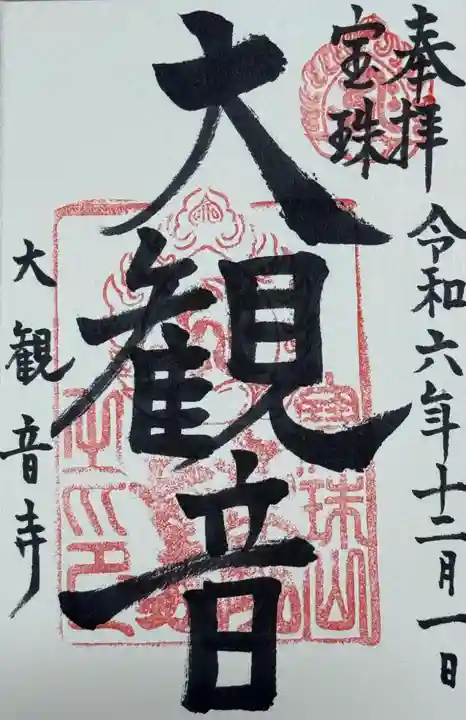 奉拝
宝珠
令和六年十二月一日
大観音
大観音寺
宝珠山
之印